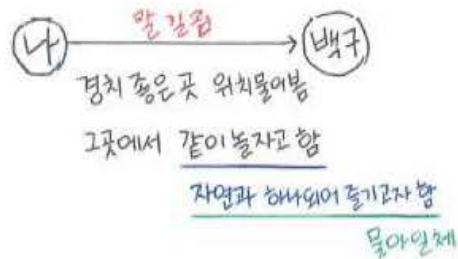 말 건넴
나 백구
경치 좋은 곳 위치물어봄
그곳에서 같이 놀자고 함
자연과 하나되어 즐기고자 함
물아일체